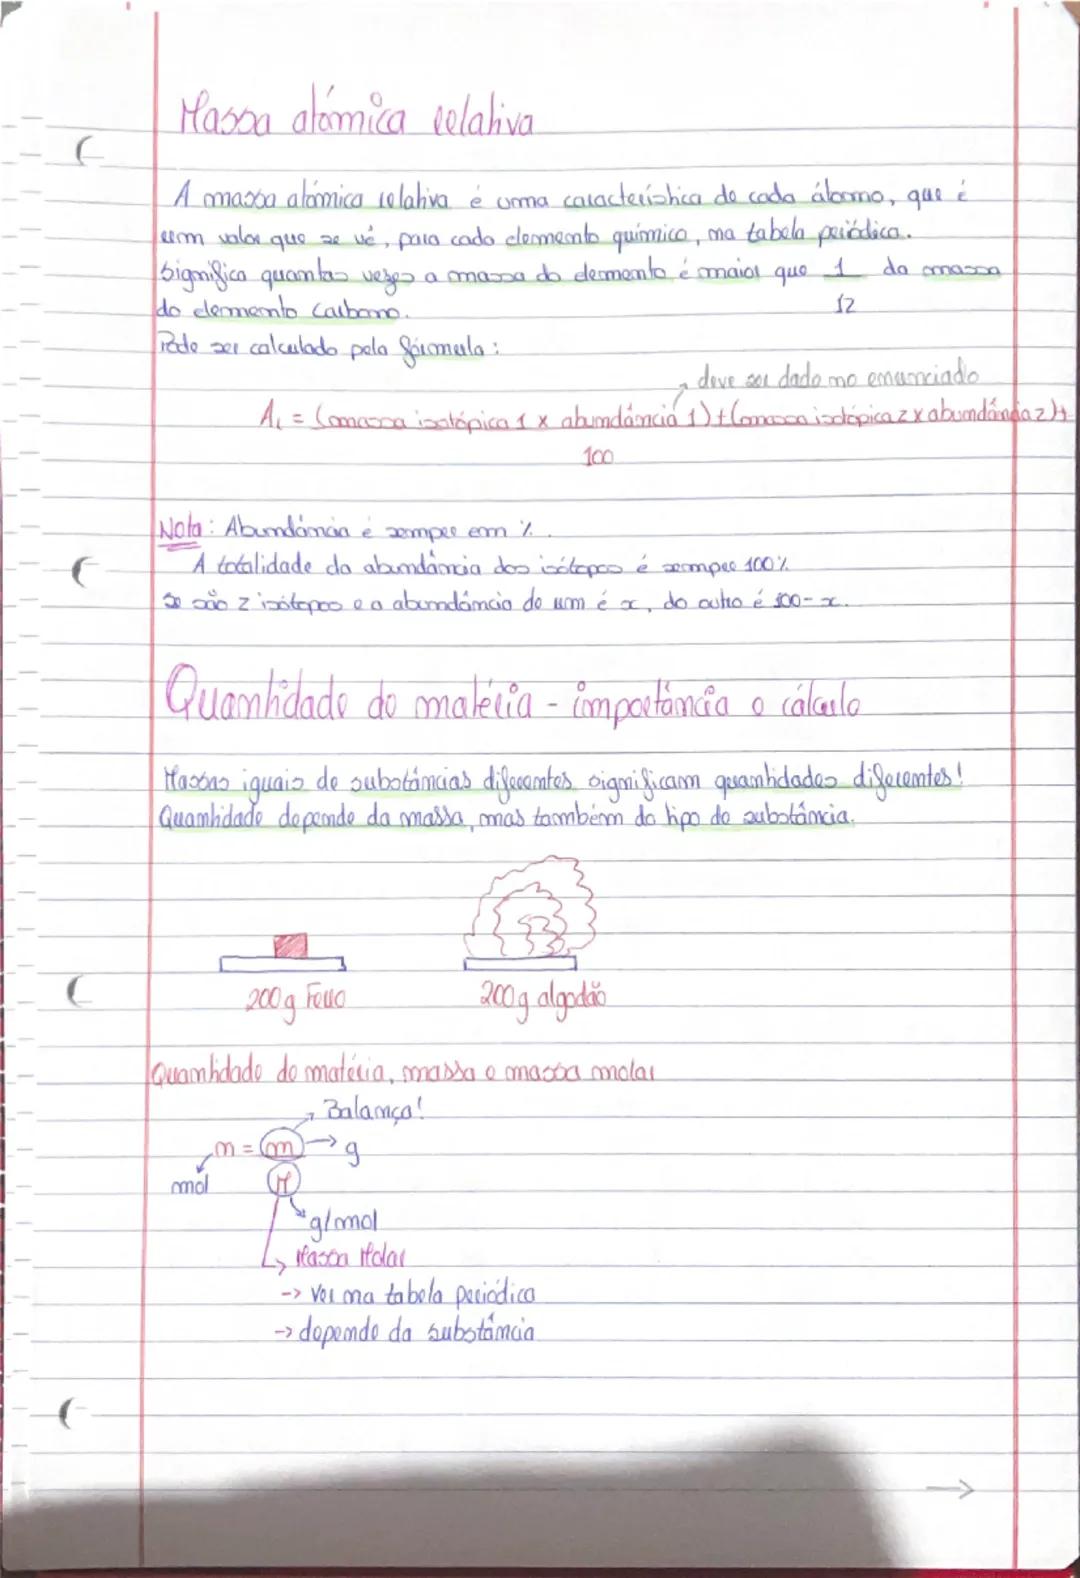 Massa atómica relativa
A massa atómica relativa é uma característica de cada átomo, que é
um valor que se vê, para cada elemento químico, na tabela periódica.
Significa quantas vezes a massa do elemento é maior que 1 da massa
12
do elemento carbono.
Pode ser calculado pela fórmula:
→ deve ser dado no enunciado
Ar = (massa isotópica 1 x abundância 1) + (massa isotópica 2 x abundância 2) +
100
Nota: Abundância é sempre em %.
A totalidade da abundância dos isótopos é sempre 100%
Se são 2 isótopos e a abundância de um é x, do outro é 100-x.
Quantidade de matéria - importância e cálculo
Massas iguais de substâncias diferentes significam quantidades diferentes!
Quantidade depende da massa, mas também do tipo de substância.
200g Ferro 200g algodão
Quantidade de matéria, massa e massa molar
→ Balança!
n = m → g
mol M
g/mol
↳ Massa Molar
-> Ver na tabela periódica
-> depende da substância
→